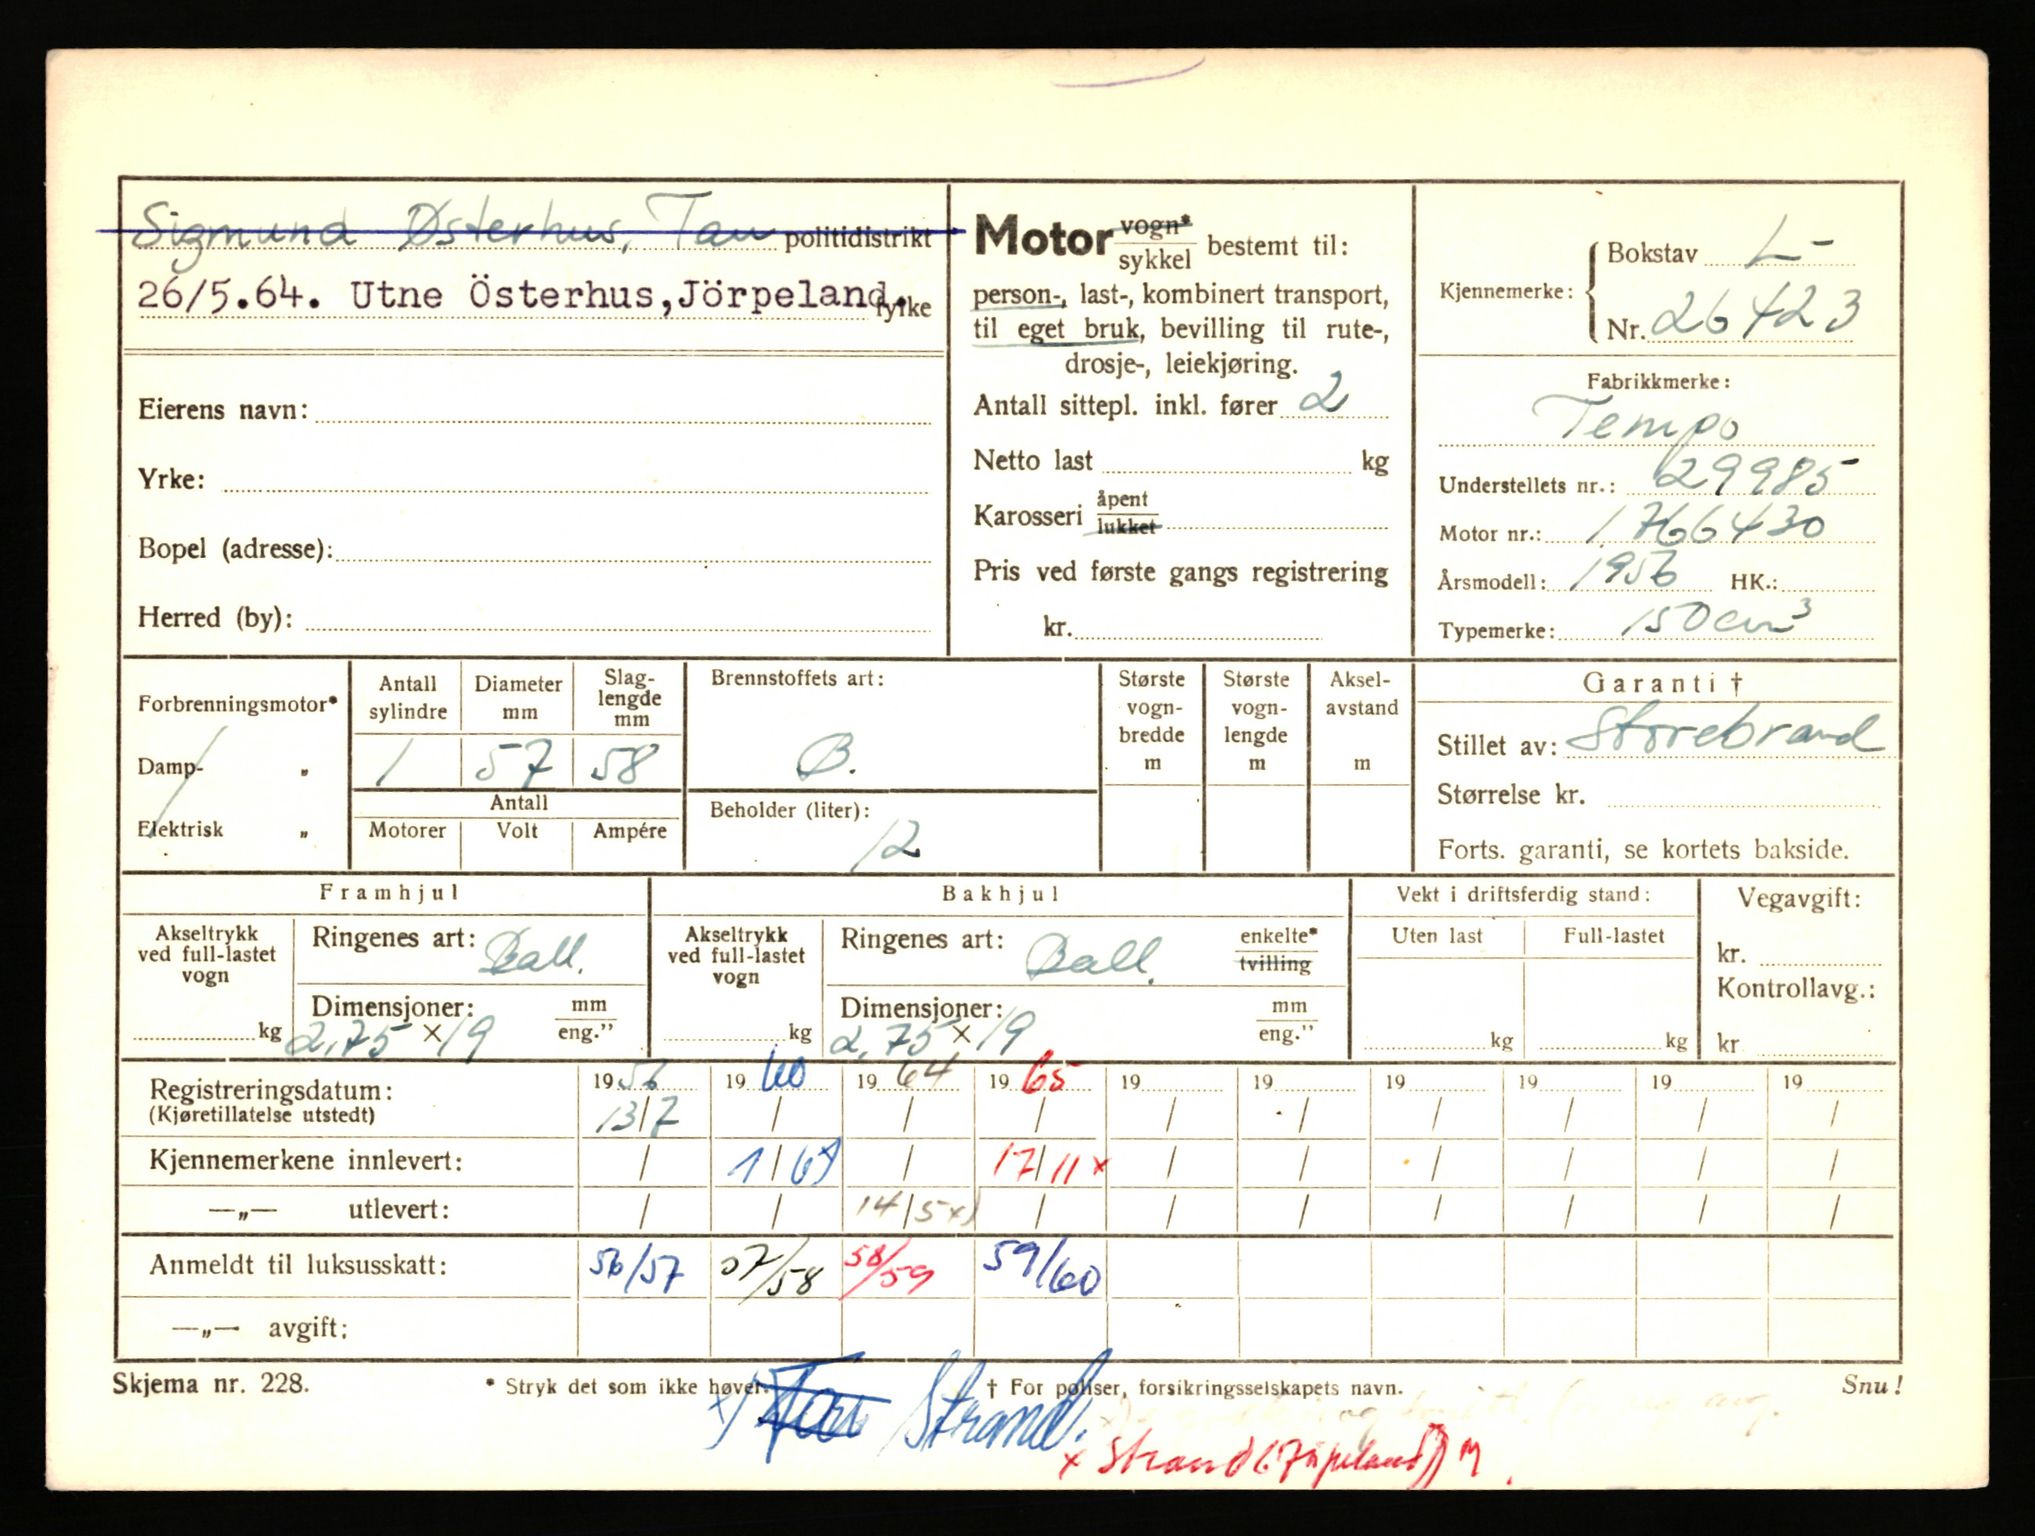 Sigmund Østerhus, Tau politidistrikt
26/5.64. Utne Österhus, Jörpeland. fylke
Eierens navn:
Yrke:
Bopel (adresse):
Herred (by):
Motor vogn* sykkel bestemt til:
person-, last-, kombinert transport,
til eget bruk, bevilling til rute-,
drosje-, leiekjøring.
Antall sittepl. inkl. fører 2
Netto last kg
Karosseri åpent lukket
Pris ved første gangs registrering
kr.
Kjennemerke: Bokstav L-
Nr. 26423
Fabrikkmerke:
Tempo
Understellets nr.: 29985
Motor nr.: 1766430
Årsmodell: 1956 HK.:
Typemerke: 150 cm3
Forbrenningsmotor*
Damp- „
Elektrisk „
Antall sylindre Diameter mm Slag-lengde mm
1 57 58
Antall
Motorer Volt Ampére
Brennstoffets art:
B.
Beholder (liter):
12
Største vogn-bredde m
Største vogn-lengde m
Aksel-avstand m
Garanti †
Stillet av: Storebrand
Størrelse kr.
Forts. garanti, se kortets bakside.
Framhjul
Akseltrykk ved full-lastet vogn
kg
Ringenes art: Ball.
Dimensjoner: mm eng.”
2,75 x 19
Bakhjul
Akseltrykk ved full-lastet vogn
kg
Ringenes art: Ball. enkelte* tvilling
Dimensjoner: mm eng.”
2,75 x 19
Vekt i driftsferdig stand:
Uten last Full-lastet
kg kg
Vegavgift:
kr.
Kontrollavg.:
kr
Registreringsdatum: 1956 1960 1964 1965 19 19 19 19 19 19
(Kjøretillatelse utstedt) 13/7 / / / / / / / / /
Kjennemerkene innlevert: / 1/6x) / 17/11 x / / / / / /
—„— utlevert: / / 14/5x) / / / / / / /
Anmeldt til luksusskatt: 56/57 57/58 58/59 59/60
—„— avgift:
Skjema nr. 228. * Stryk det som ikke høver. † For poliser, forsikringsselskapets navn. Snu!
x) Tau Strand.
x Strand (Jørpeland)